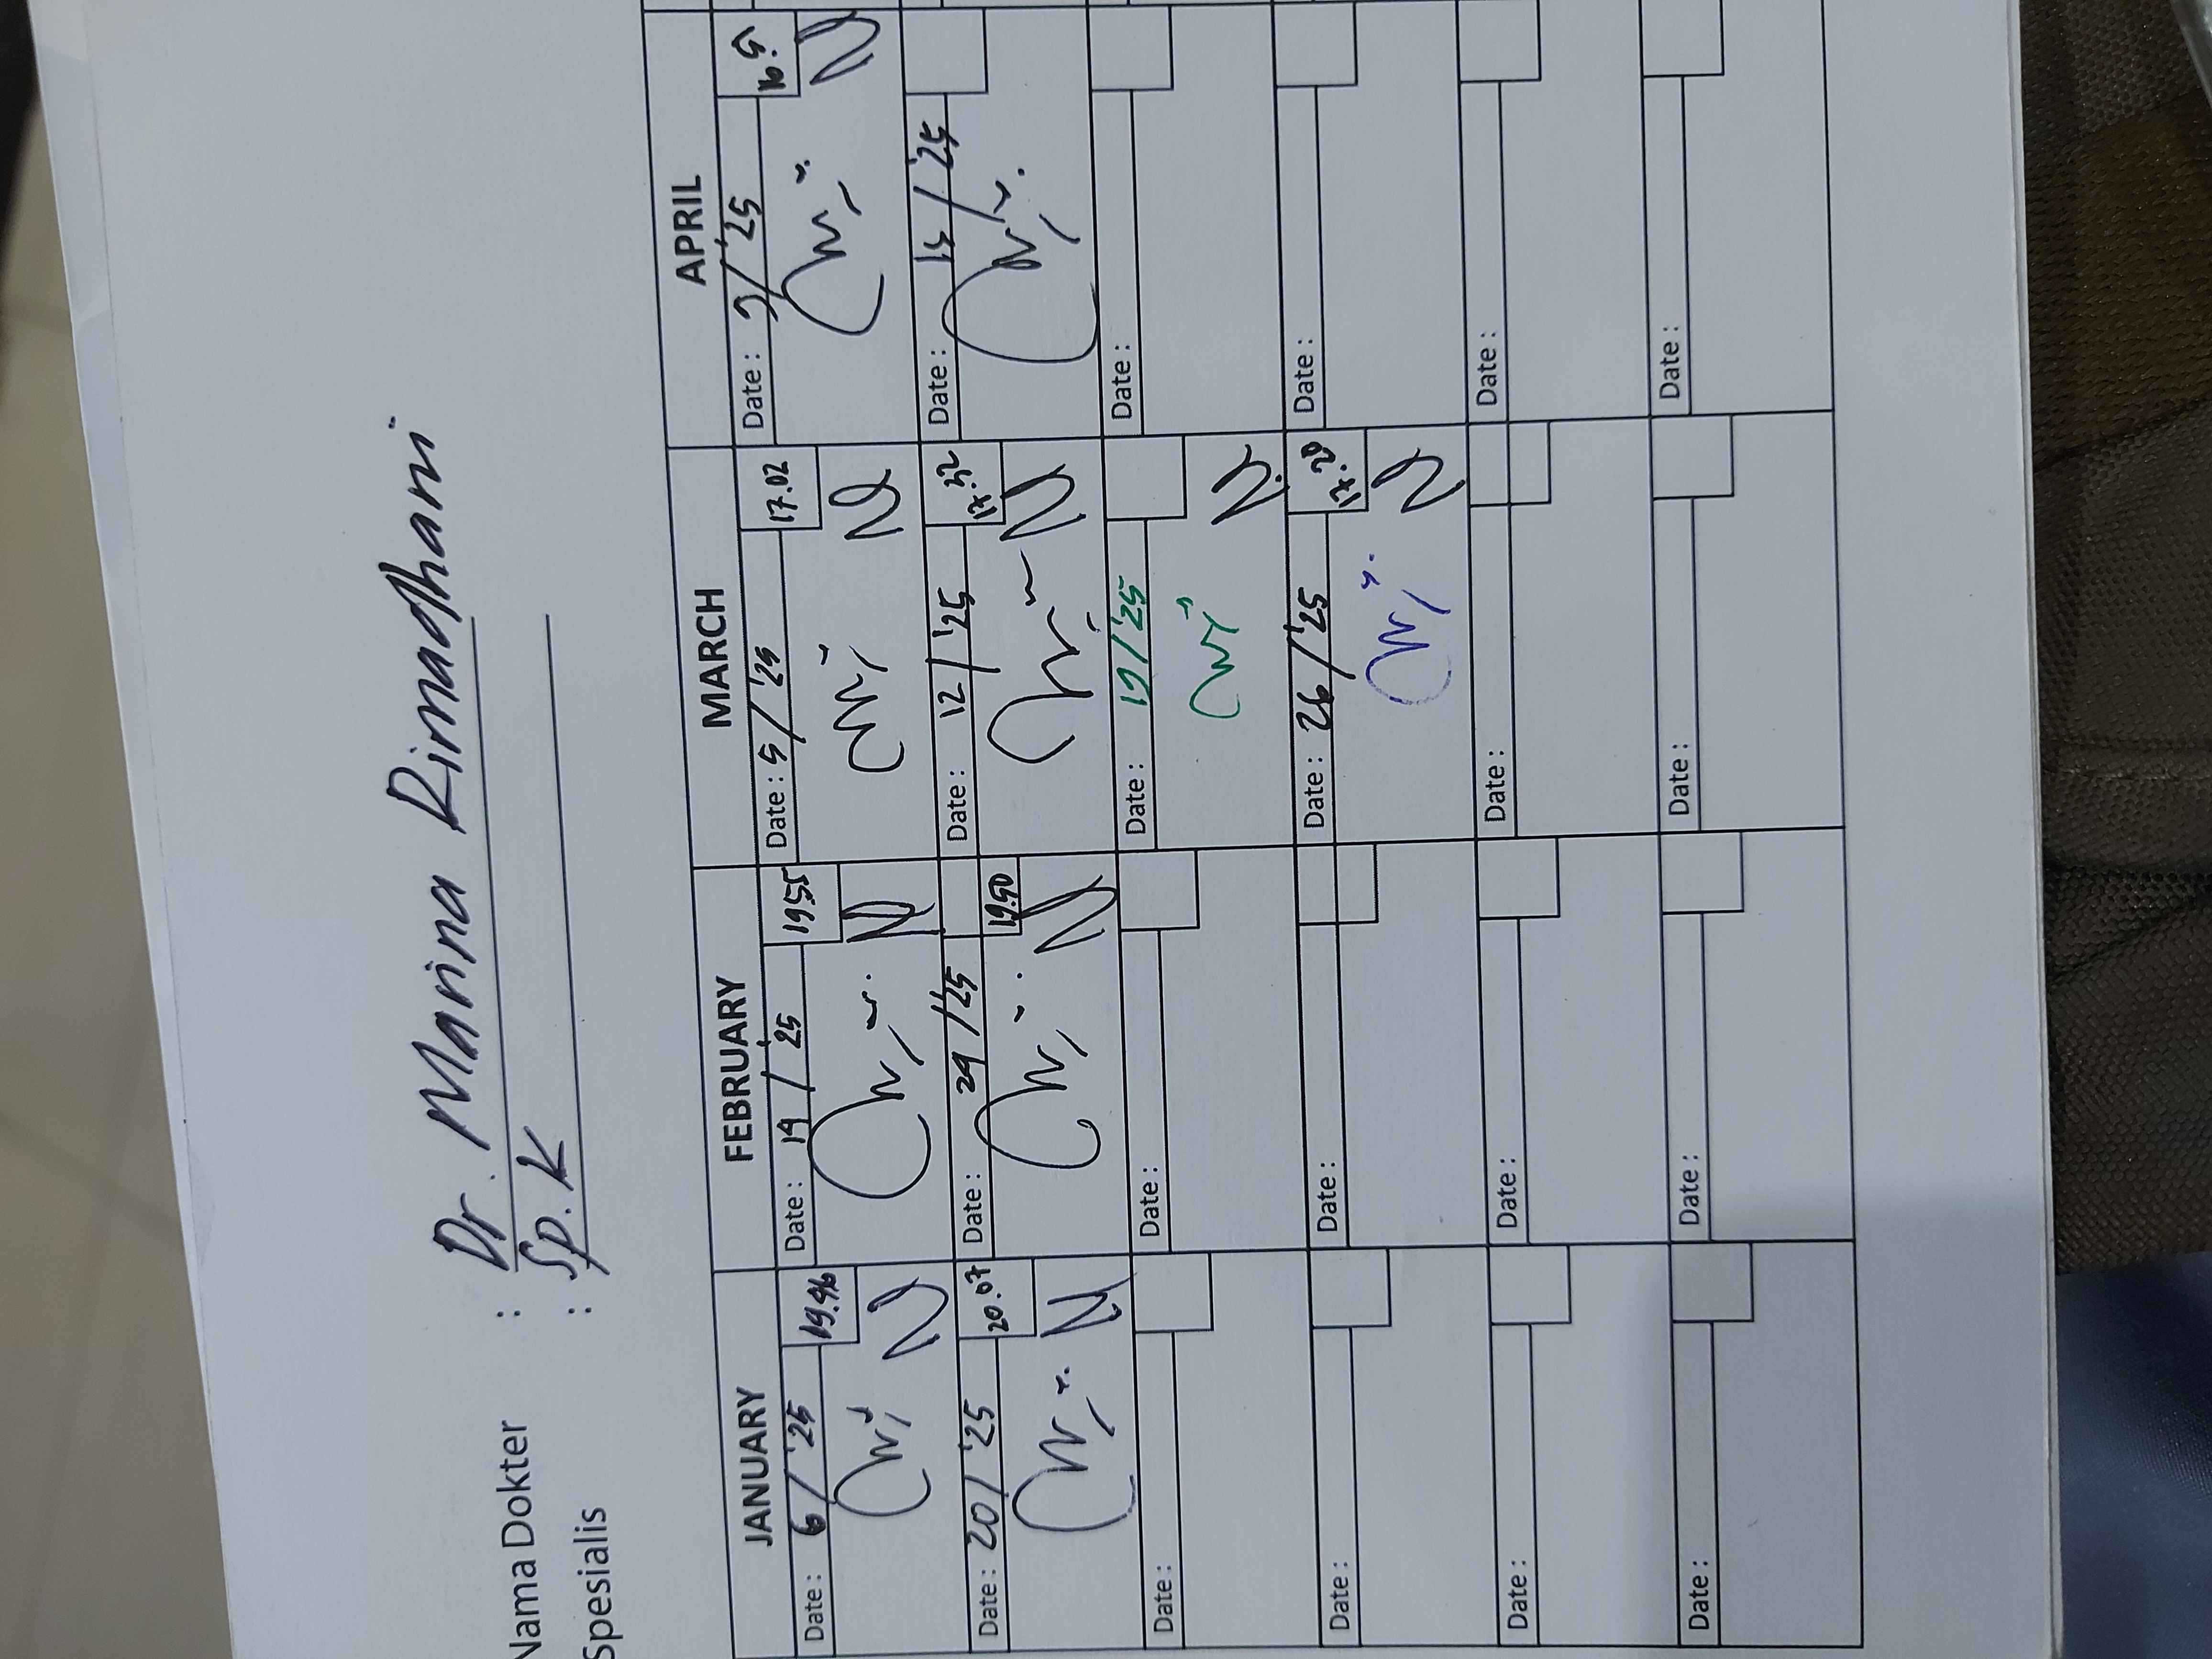 Nama Dokter : Dr. Marina Rimadhani
Spesialis : Sp.K
JANUARY FEBRUARY MARCH APRIL
Date : 6 / '25 19.46 Date : 19 / '25 19.55 Date : 5 / '25 17.02 Date : / '25
Date : 20 / '25 20.07 Date : 24 / '25 19.50 Date : 12 / '25 17.52 Date : / '25
Date : Date : Date : 19 / '25 Date :
Date : Date : Date : 26 / '25 17.20 Date :
Date : Date : Date : Date :
Date : Date : Date : Date :